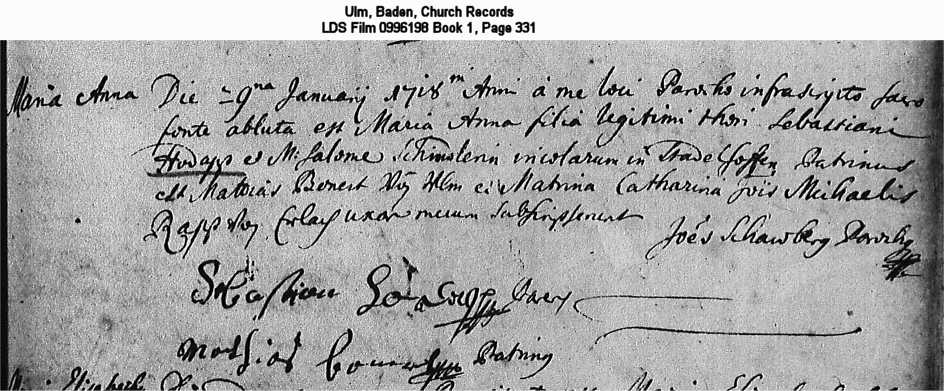 Ulm, Baden, Church Records
LDS Film 0996198 Book 1, Page 331
Maria Anna Die 29na Januarij 1718m Anni à me loci Parocho infrascripto sacro
fonte abluta est Maria Anna filia legitimi thori Sebastiani
Hodapp et M: Salome incolarum in Stadelhoffen Patrinus
est Mathias Bonert Von Ulm et Matrina Catharina Jois Michaelis
Rapp Von Erlach uxor mecum subscripserunt
Joes Schawberg Parochus
Sebastian Pater
Mathias Patrinus
Maria Elisabeth